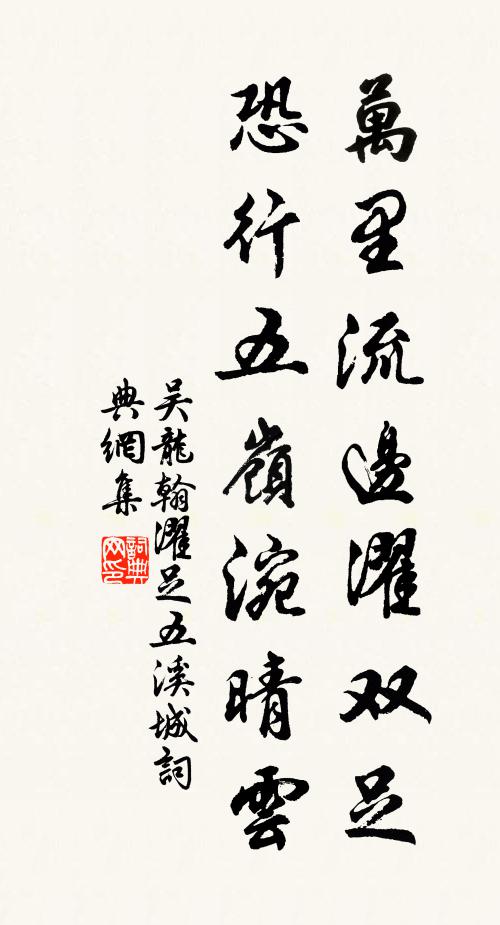 萬里流邊濯双足
恐行五嶺涴晴雲
吴龍翰濯足五溪城詞
典網集
詞典
网印